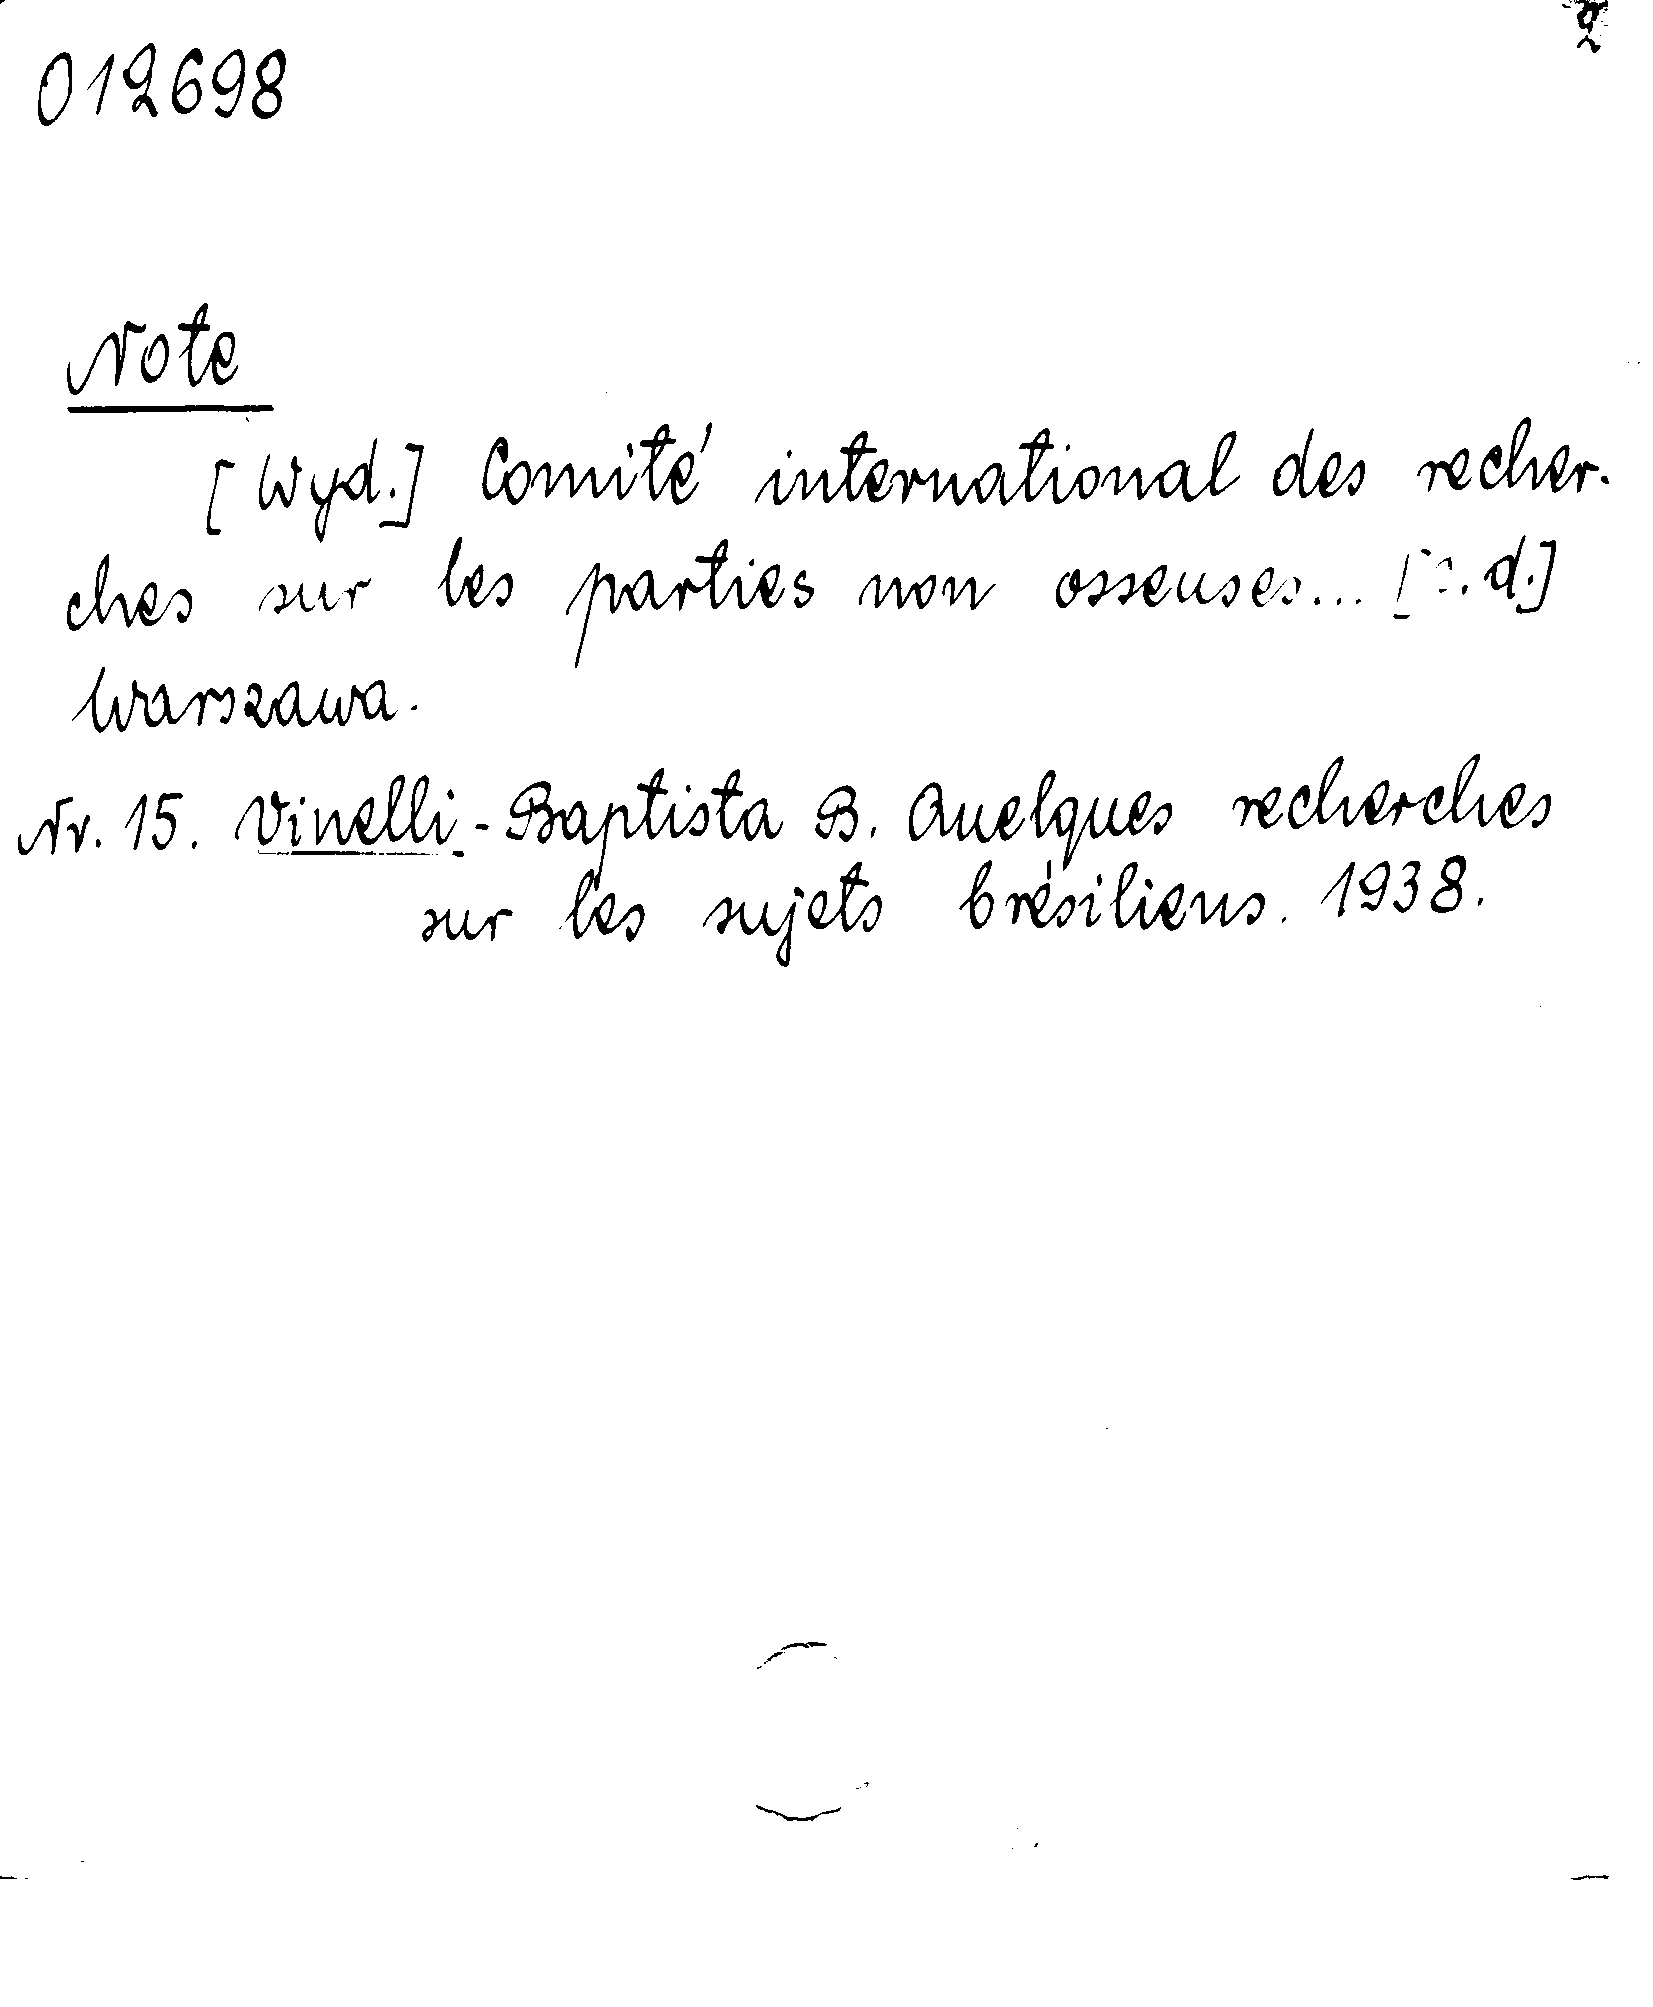 2
012698
Note
[Wyd.] Comité international des recher-
ches sur les parties non osseuses... d.]
Warszawa.
Nr. 15. Vinelli-Baptista B. Quelques recherches
sur les sujets brésiliens. 1938.